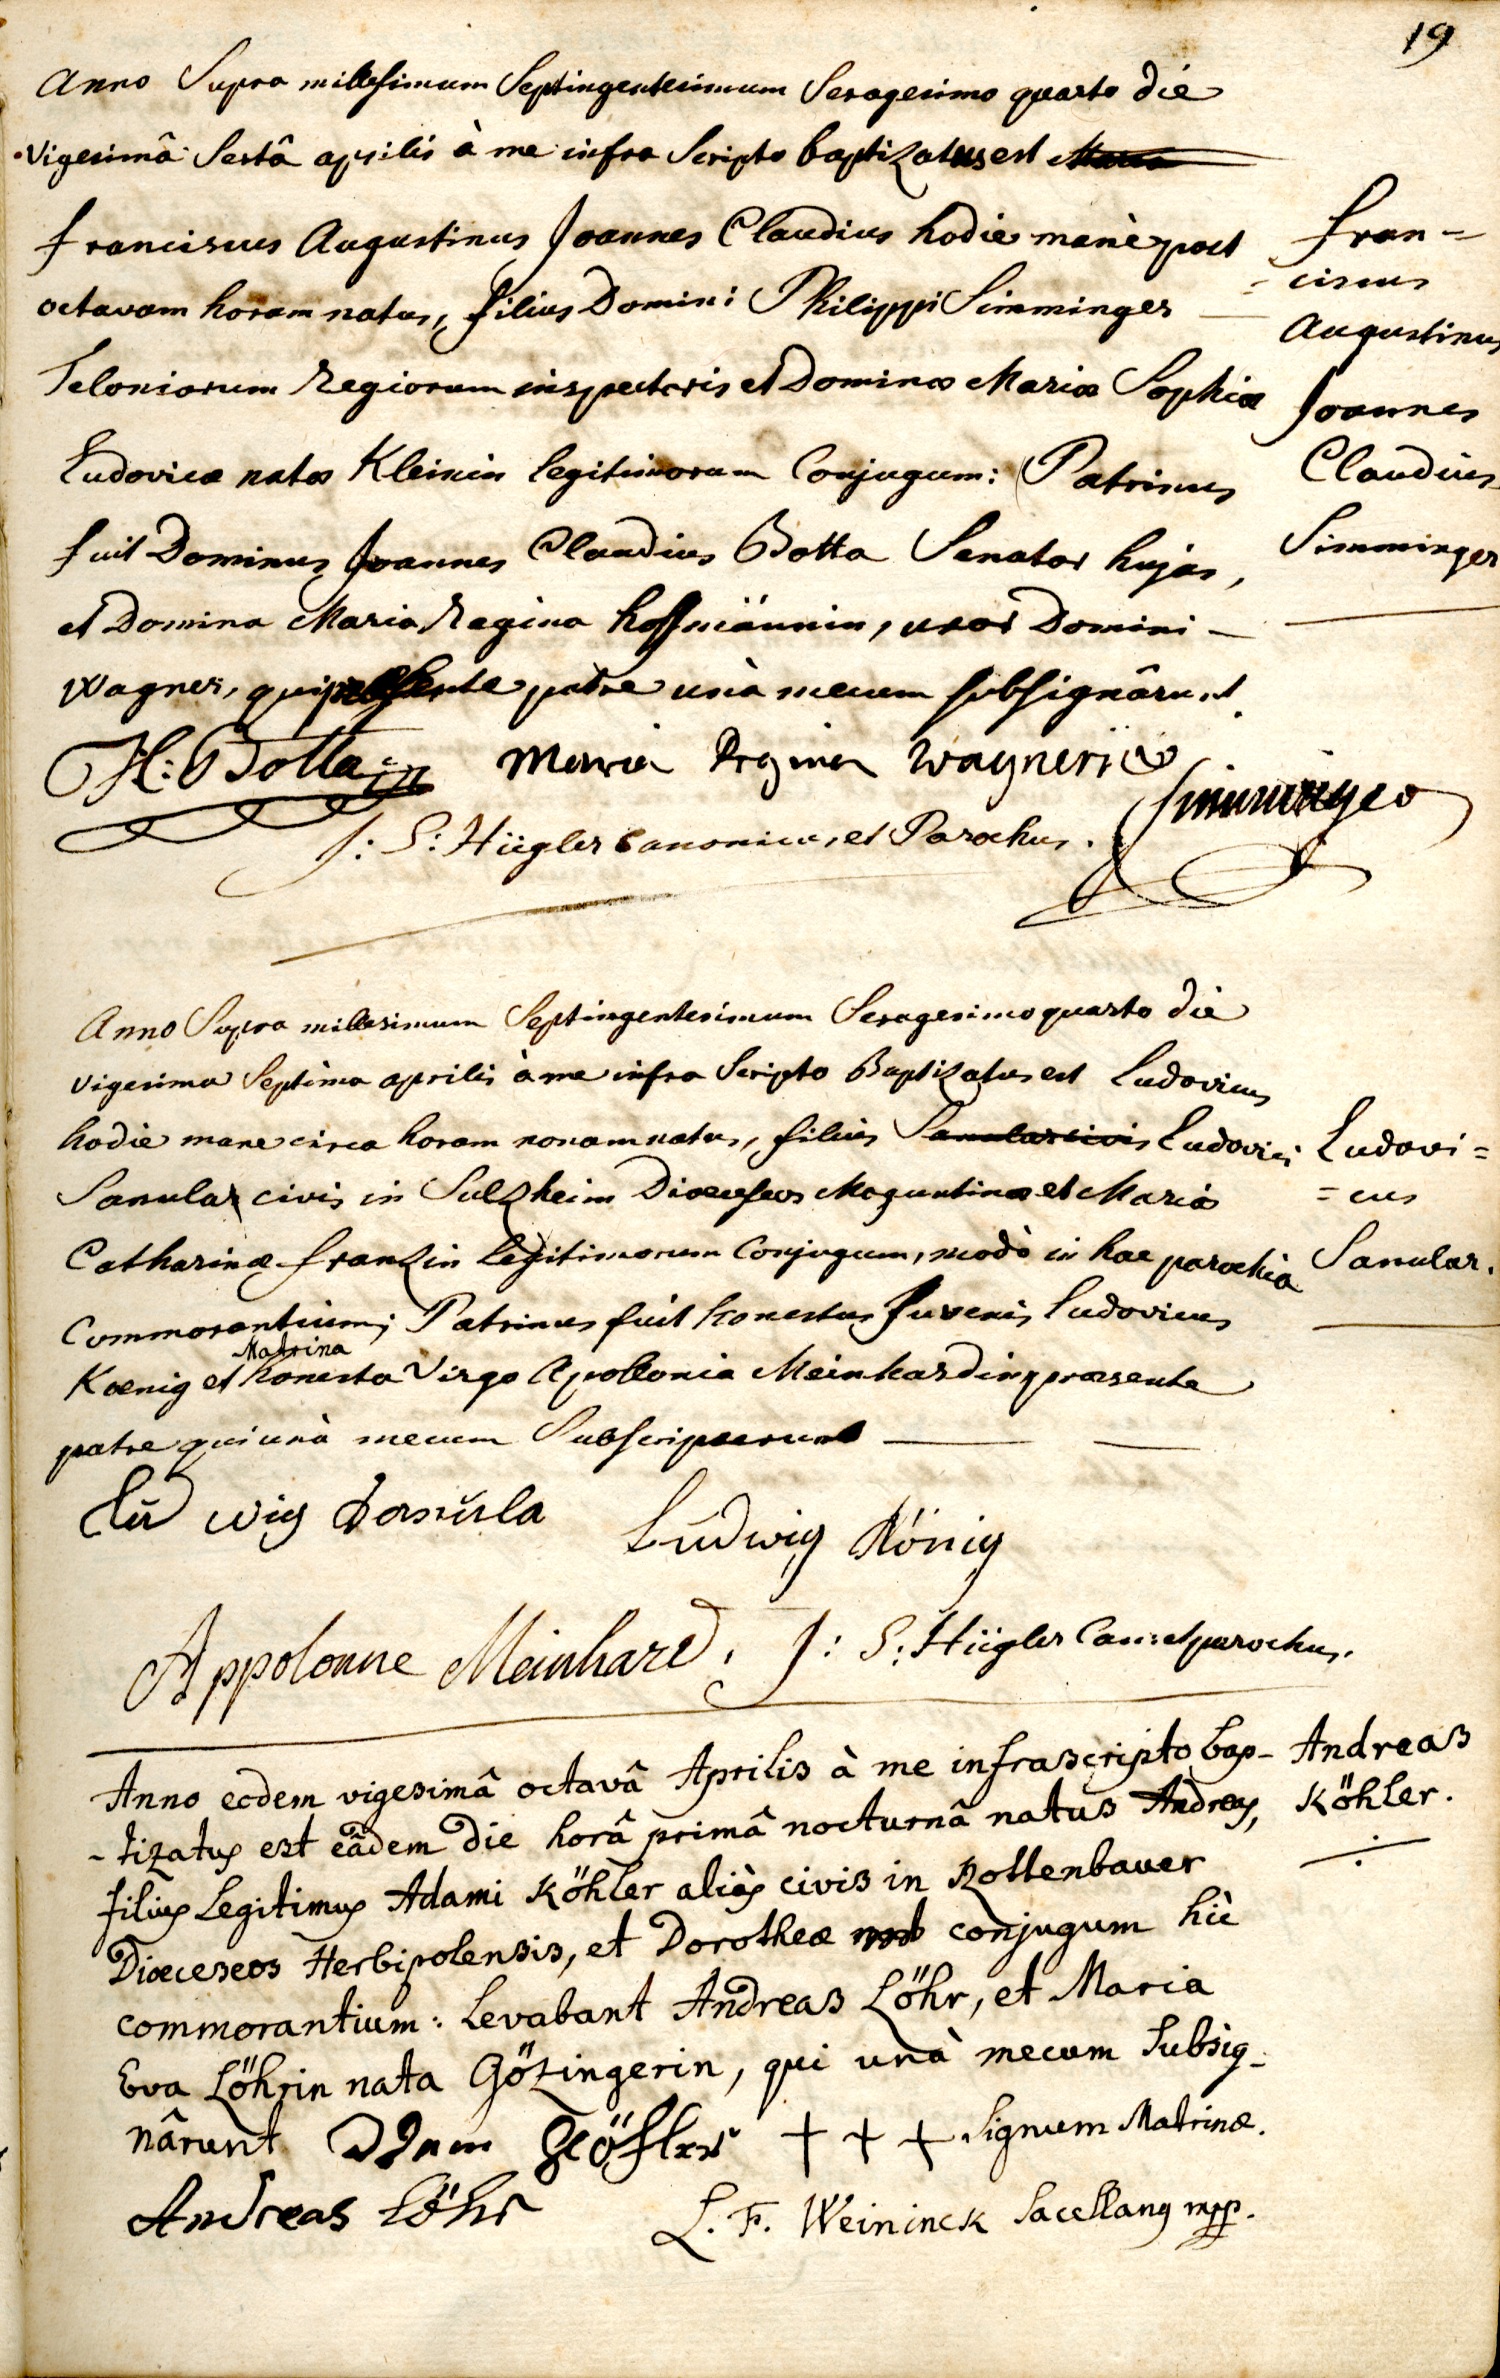 19
Anno Supra millesimum Septingentesimum Sexagesimo quarto die
vigesimâ Sextâ aprilis à me infra Scripto baptizatus est
Franciscus Augustinus Joannes Claudius hodie manè post
octavam horam natus, filius Domini Philippi Simminger
Teloniorum Regiorum inspectoris et Dominæ Mariæ Sophiæ
Ludovicæ natæ Kleinin legitimorum Conjugum: Patrinus
fuit Dominus Joannes Claudius Botta Senator hujas,
et Domina Maria Regina hoffmännin, uxor Domini
Wagner, qui præsente patre unà mecum subsignârunt.
Fran=
=ciscus
Augustinus
Joannes
Claudius
Simminger
H: Botta
Maria Regina Wagnerin
Simminger
J: S: Hügler Canonicus et Parochus.
Anno Supra millesimum Septingentesimum Sexagesimo quarto die
vigesima Septima aprilis à me infra Scripto Baptizatus est Ludovicus
hodie mane circa horam nonam natus, filius Ludovici
Sanular civis in Sulzheim Dioeceseos Moguntinæ et Mariæ
Catharinæ franzin legitimorum Conjugum, modò in hac parochia
Commorantium; Patrinus fuit honestus Juvenis Ludovicus
Matrina
Koenig et honesta Virgo Apollonia Meinhardin præsente
patre qui unà mecum Subscripserunt
Ludovi=
=cus
Sanular.
Ludwig
Ludwig König
Appolonne Meinhard.
J: S: Hügler Can: et parochus.
Anno eodem vigesimâ octavâ Aprilis à me infrascripto bap-
-tizatus est eâdem die horâ primâ nocturnâ natus Andreas,
filius Legitimus Adami Köhler aliàs civis in Rottenbauer
Dioeceseos Herbipolensis, et Dorotheæ conjugum hic
commorantium: Levabant Andreas Löhr, et Maria
Eva Löhrin nata Götzingerin, qui unà mecum Subsig-
nârunt Adam Köhler + + + Signum Matrinæ.
Andreas
Köhler.
Andreas Löhr
L. F. Weininck Sacellanus mpp.